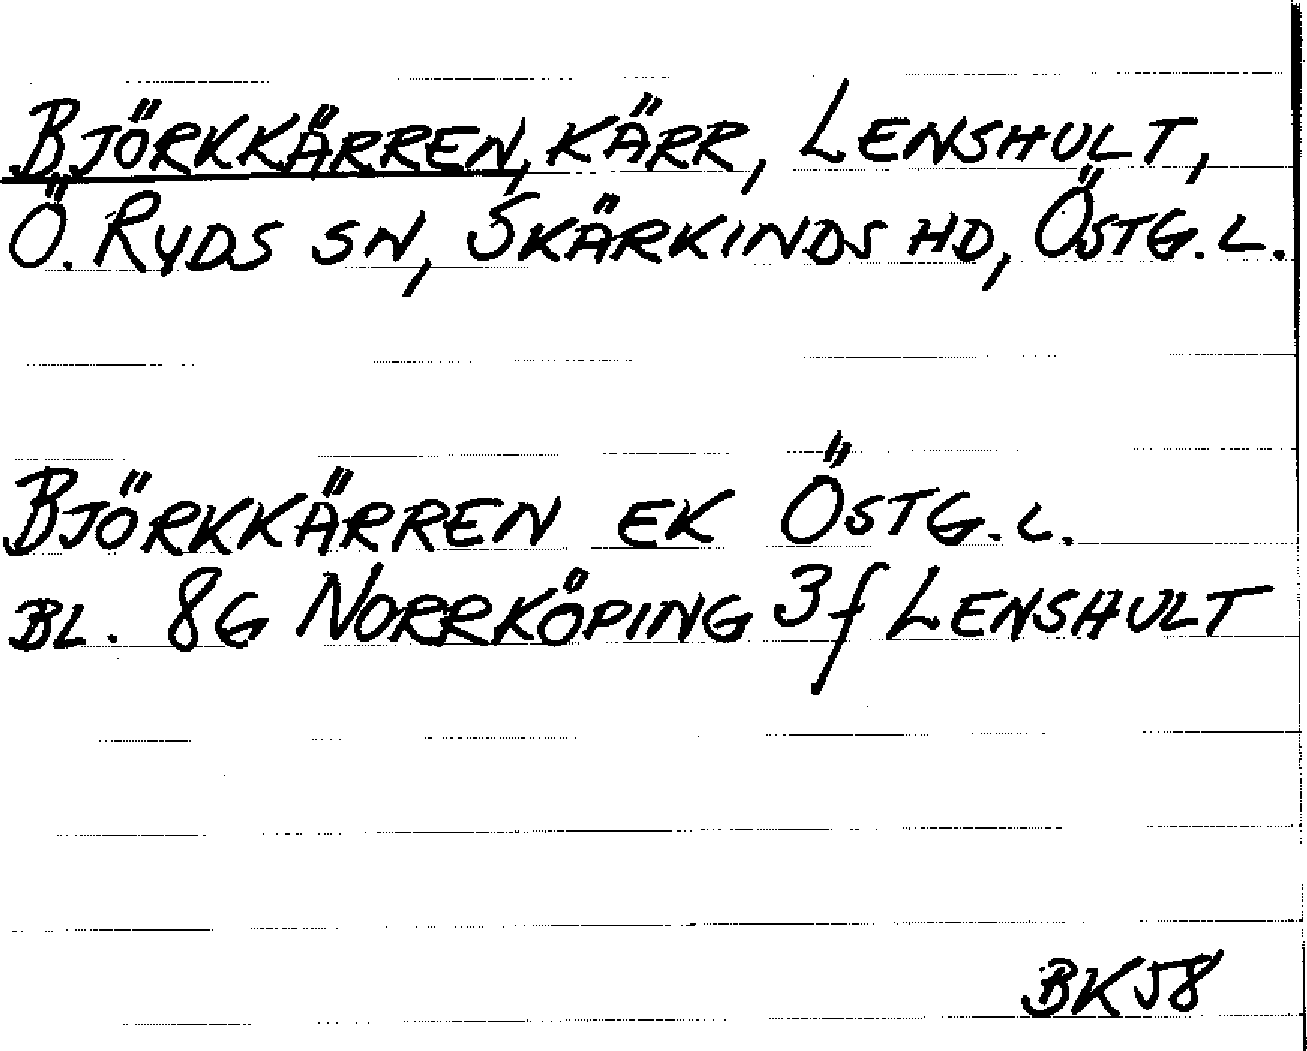 BJÖRKKÄRREN, KÄRR, LENSHULT,
Ö. RYDS SN, SKÄRKINDS HD, ÖSTG. L.
BJÖRKKÄRREN EK ÖSTG. L.
BL. 8G NORRKÖPING 3f LENSHULT
BK58